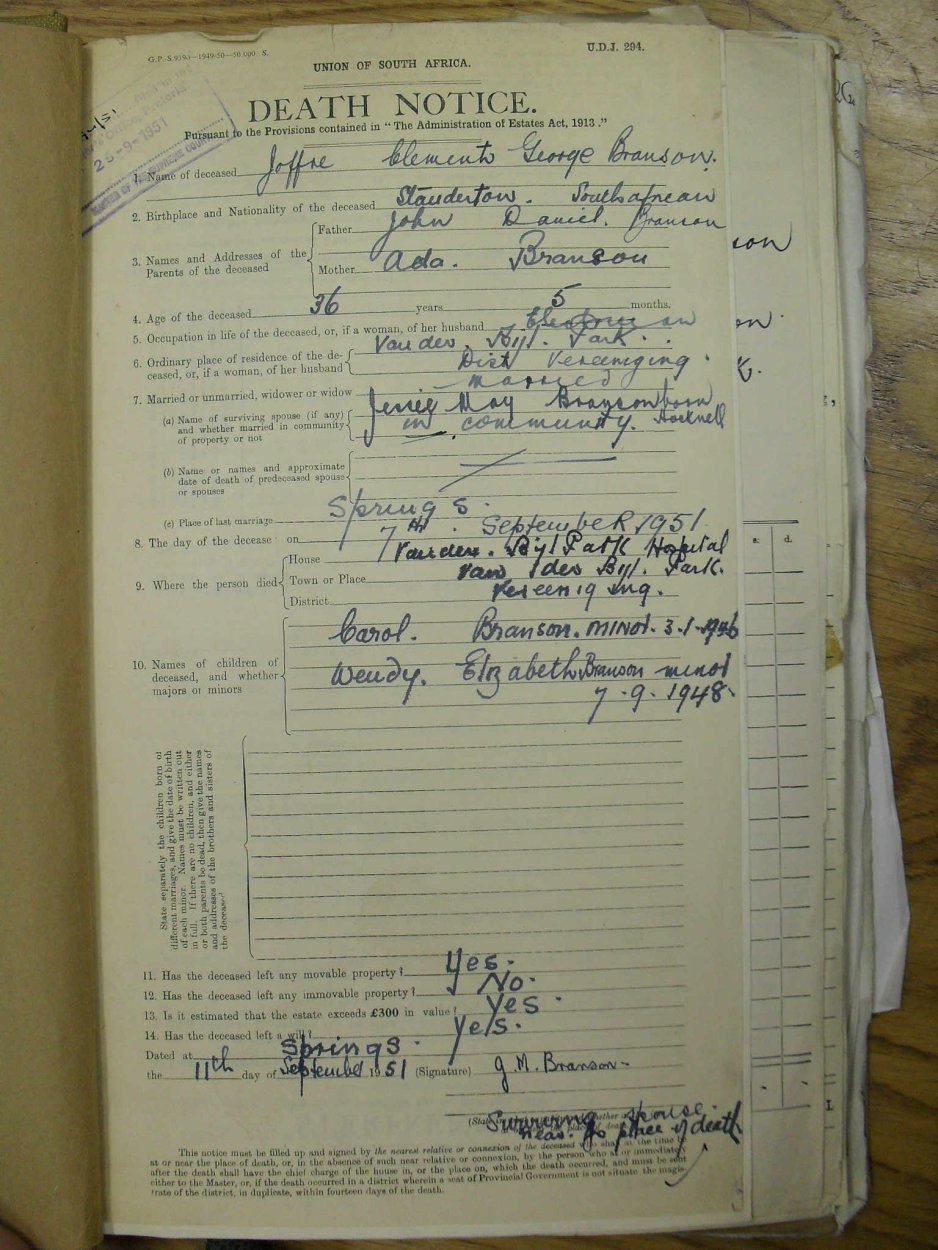 G.P.-S.9193—1949-50—50,000 S.
U.D.J. 294.
UNION OF SOUTH AFRICA.
DEATH NOTICE.
Pursuant to the Provisions contained in “The Administration of Estates Act, 1913.”
25-9-1951
1. Name of deceased Joffre Clements George Branson.
2. Birthplace and Nationality of the deceased Standerton. South african
3. Names and Addresses of the Parents of the deceased
Father John Daniel. Branson
Mother Ada. Branson
4. Age of the deceased 36 years 5 months.
5. Occupation in life of the deceased, or, if a woman, of her husband
6. Ordinary place of residence of the de-
ceased, or, if a woman, of her husband
Vander. Byl. Park.
Dist Vereeniging.
7. Married or unmarried, widower or widow married
(a) Name of surviving spouse (if any)
and whether married in community
of property or not
Jessie May Branson born
in community. Hocknell
(b) Name or names and approximate
date of death of predeceased spouse
or spouses
(c) Place of last marriage Springs.
8. The day of the decease on 7th. September 1951
9. Where the person died
House Vander. Byl Park Hospital
Town or Place Van der Byl. Park.
District Vereeniging.
10. Names of children of
deceased, and whether
majors or minors
Carol. Branson. minor. 3-1-1946
Wendy. Elizabeth Branson minor
7-9-1948-
State separately the children born of
different marriages, and give the date of birth
of each minor. Names must be written out
in full. If there are no children, and either
or both parents be dead, then give the names
and addresses of the brothers and sisters of
the deceased
11. Has the deceased left any movable property? Yes.
12. Has the deceased left any immovable property? No.
13. Is it estimated that the estate exceeds £300 in value? Yes
14. Has the deceased left a will? Yes.
Dated at Springs.
the 11th day of September 1951 (Signature) J.M. Branson-
Surviving spouse.
near. to place of death
This notice must be filled up and signed by the nearest relative or connexion of the deceased who shall at the time be
at or near the place of death, or, in the absence of such near relative or connexion, by the person who at or immediately
after the death shall have the chief charge of the house in, or the place on, which the death occurred, and must be sent
either to the Master, or, if the death occurred in a district wherein a seat of Provincial Government is not situate the magis-
trate of the district, in duplicate, within fourteen days of the death.
s. d.